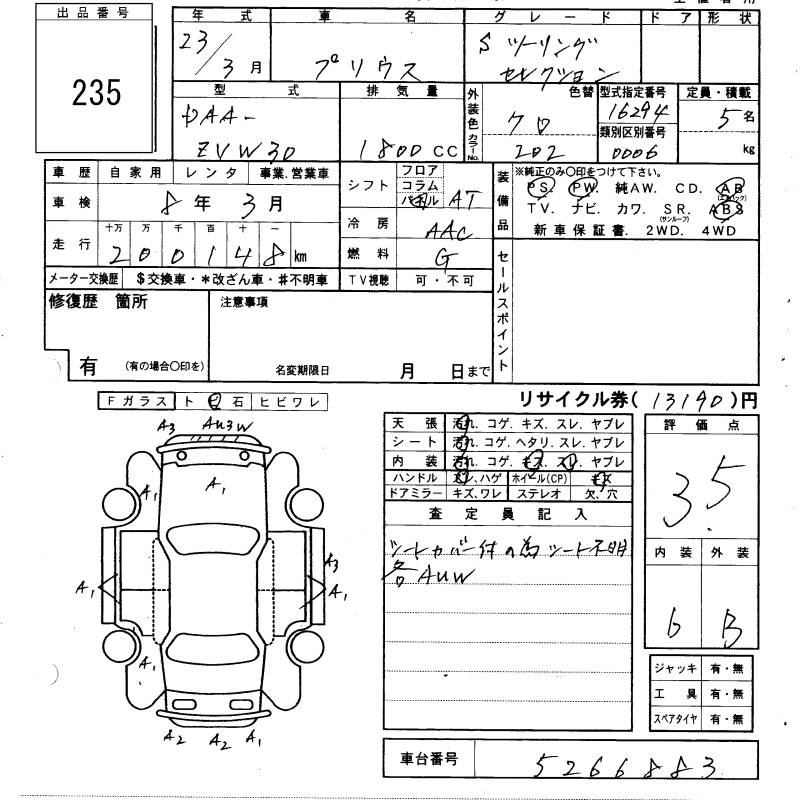 出品番号
235
年式 車名 グレード ドア 形状
23/3月 プリウス Sツーリング
セレクション
型式 排気量 外装色 色替 型式指定番号 定員・積載
DAA- クロ 16294 5名
カラーNo. 類別区別番号
ZVW30 1800CC 202 0006 kg
車歴 自家用 レンタ 事業.営業車
シフト フロア
コラム
パネル AT
装備品 ※純正のみ〇印をつけて下さい。
PS. PW. 純AW. CD. AB
(エアバック)
車検 8年3月
TV. ナビ. カワ. SR. ABS
(サンルーフ)
冷房 AAC
新車保証書. 2WD. 4WD
走行 十万 万 千 百 十 一
200148km
燃料 G
セールスポイント
メーター交換歴 $交換車・*改ざん車・#不明車 TV視聴 可・不可
修復歴 箇所 注意事項
有 (有の場合〇印を) 名変期限日 月 日まで
Fガラス ト 石 ヒビワレ
リサイクル券(13190)円
A3 AU3W
天張 汚れ. コゲ. キズ. スレ. ヤブレ
評価点
シート 汚れ. コゲ. ヘタリ. スレ. ヤブレ
内装 汚れ. コゲ. キズ. スレ. ヤブレ
3.5
ハンドル スレ、ハゲ ホイール(CP) キズ
ドアミラー キズ、ワレ ステレオ 欠、穴
A1 A1
査定員記入
シートカバー付の為シート不明
内装 外装
各AUW
A3
A1 A1
6 B
A1
ジャッキ 有・無
工具 有・無
スペアタイヤ 有・無
A2 A2 A1
車台番号 5266883